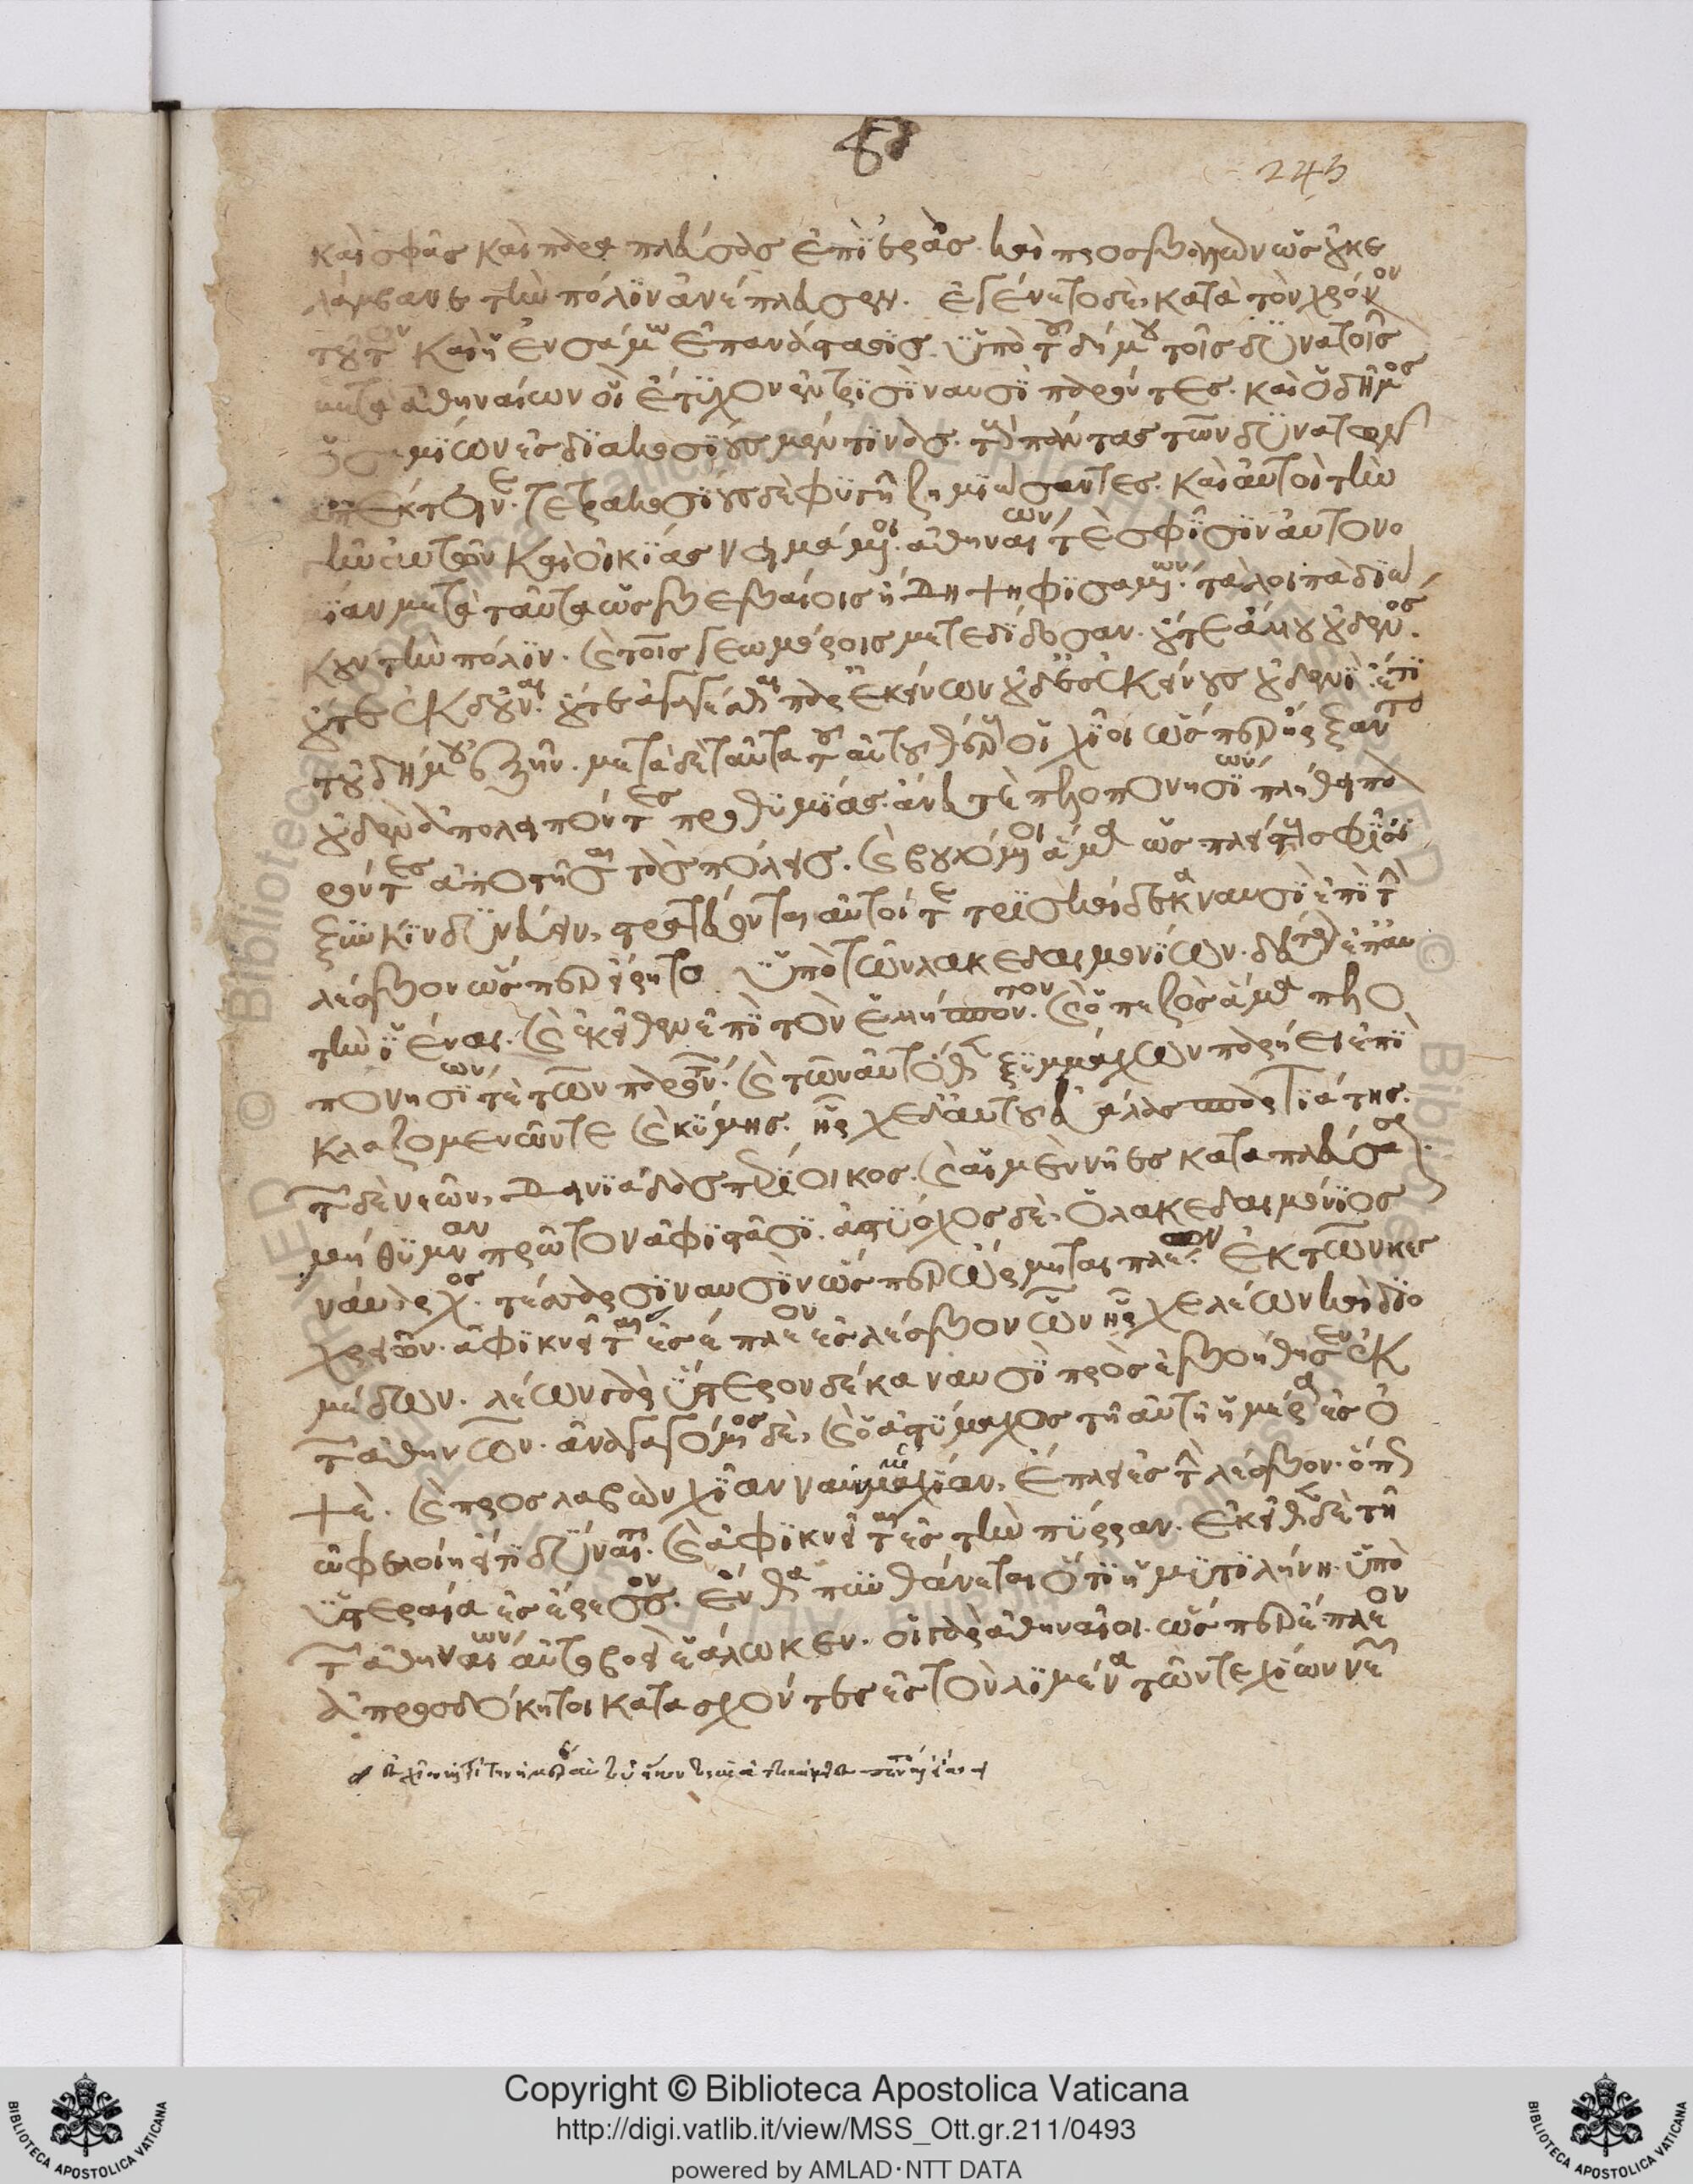 καὶ σφᾶς καὶ παραπλεύσας ἐπὶ ἐρὰς. καὶ προσβαλὼν ὡς οὐκ ε
λάμβανε τὴν πόλιν ἀνέπλευσεν. ἐγένετο δὲ, κατὰ τὸν χρόνον
τοῦτον καὶ ἡ ἐν σάμω ἐπανάστασις. ὑπὸ τοῦ δήμου τοῖς δυνατοῖς
μετὰ ἀθηναίων οἳ ἔτυχον ἐν τρισὶ ναυσὶ παρόντες. καὶ ὁ δῆμος
ὁ σαμίων ἐς διακοσίους μέν τινας. τοὺς πάντας τῶν δυνατων
ἀπέκτεινε. τετρακοσίους δὲ φυγῆ ζημιώσαντες. καὶ αὐτοὶ τὴν
γῆν αὐτῶν καὶ οἰκίας νειμάμενοι. ἀθηναίων τὲ σφίσιν αὐτονο
μίαν μετὰ ταῦτα ὡς βεβαίοις ἤδη ψηφισαμένων. τὰ λοιπὰ διώ
κουν τὴν πόλιν. καὶ τοῖς γεωμόροις μετεδίδοσαν. οὔτε ἄλλου οὐδενός.
οὔτε ἐκδοῦναι. οὔτε ἀγαγέσθαι παρ' ἐκείνων οὐδ' ἐς ἐκείνους οὐδενὶ ἔτι
τοῦ δήμου ἐξῆν. μετὰ δὲ ταῦτα τοῦ αὐτοῦ θέρους οἱ χῖοι ὥσπερ ἤρξαντο
οὐδὲν ἀπολείποντες προθυμίας. ἄνευ τὲ πελοπονησίων πλήθει πα
ρόντες ἀποστῆσαι τὰς πόλεις. καὶ βουλόμενοι ἅμα ὡς πλείστους σφίσι
ξυγκινδυνεύειν, στρατεύονται αὐτοί τε τρισκαίδεκα ναυσὶ ἐπὶ τὴν
λέσβον ὥσπερ εἴρητο ὑπὸ τῶν λακεδαιμονίων. δεύτερον ἐπ' αὐ
τὴν ἰέναι. καὶ ἐκεῖθεν ἐπὶ τὸν ἑλλήσποντον. καὶ ὁ πεζὸς ἅμα πελο
πονησίων τὲ τῶν παρόντων. καὶ τῶν αὐτόθεν ξυμμάχων παρήει ἐπὶ
κλαζομενῶν τε καὶ κύμης. ἦρχε δ' αὐτοῦ εὐάλας σπαρτιάτης.
τῶν δὲ νεῶν, δεινιάδας περίοικος. καὶ αἱ μὲν νῆες καταπλεύσασαι
μήθυμναν πρῶτον ἀφιστᾶσι. ἀστύοχος δὲ, ὁ λακεδαιμόνιος
ναύαρχος. τέσσαρσι ναυσὶν ὥσπερ ὥρμητο πλέων ἐκ τῶν κεγ
χρειῶν. ἀφικνεῖται ἐς
μέδων. λέων γὰρ ὕστερον δέκα ναυσὶ προσεβοήθησεν ἐκ
τῶν ἀθηνῶν. ἀναγαγόμενος δὲ, καὶ ὁ ἀστύοχος τῆ αὐτῆ ἡμέρα ἐς ὀ
ψὲ. καὶ προσλαβὼν χίαν ναῦν μίαν, ἔπλει ἐς τὴν λέσβον. ὅπως
ὠφελοίη εἴ τι δύναιτο. καὶ ἀφικνεῖται ἐς τὴν πύρραν. ἐκεῖθεν δὲ τῆ
ὑστεραία ἐς ἔρεσον. ἔνθα πυνθάνεται ὅτι ἡ μυτιλήνη ὑπὸ
τῶν ἀθηναίων αὐτοβοεὶ ἑάλωκεν. οἱ γὰρ ἀθηναῖοι. ὥσπερ ἔπλεον
ἀπροσδόκητοι κατασχόντες ἐς τὸν λιμένα τῶν τε χίων νεῶν